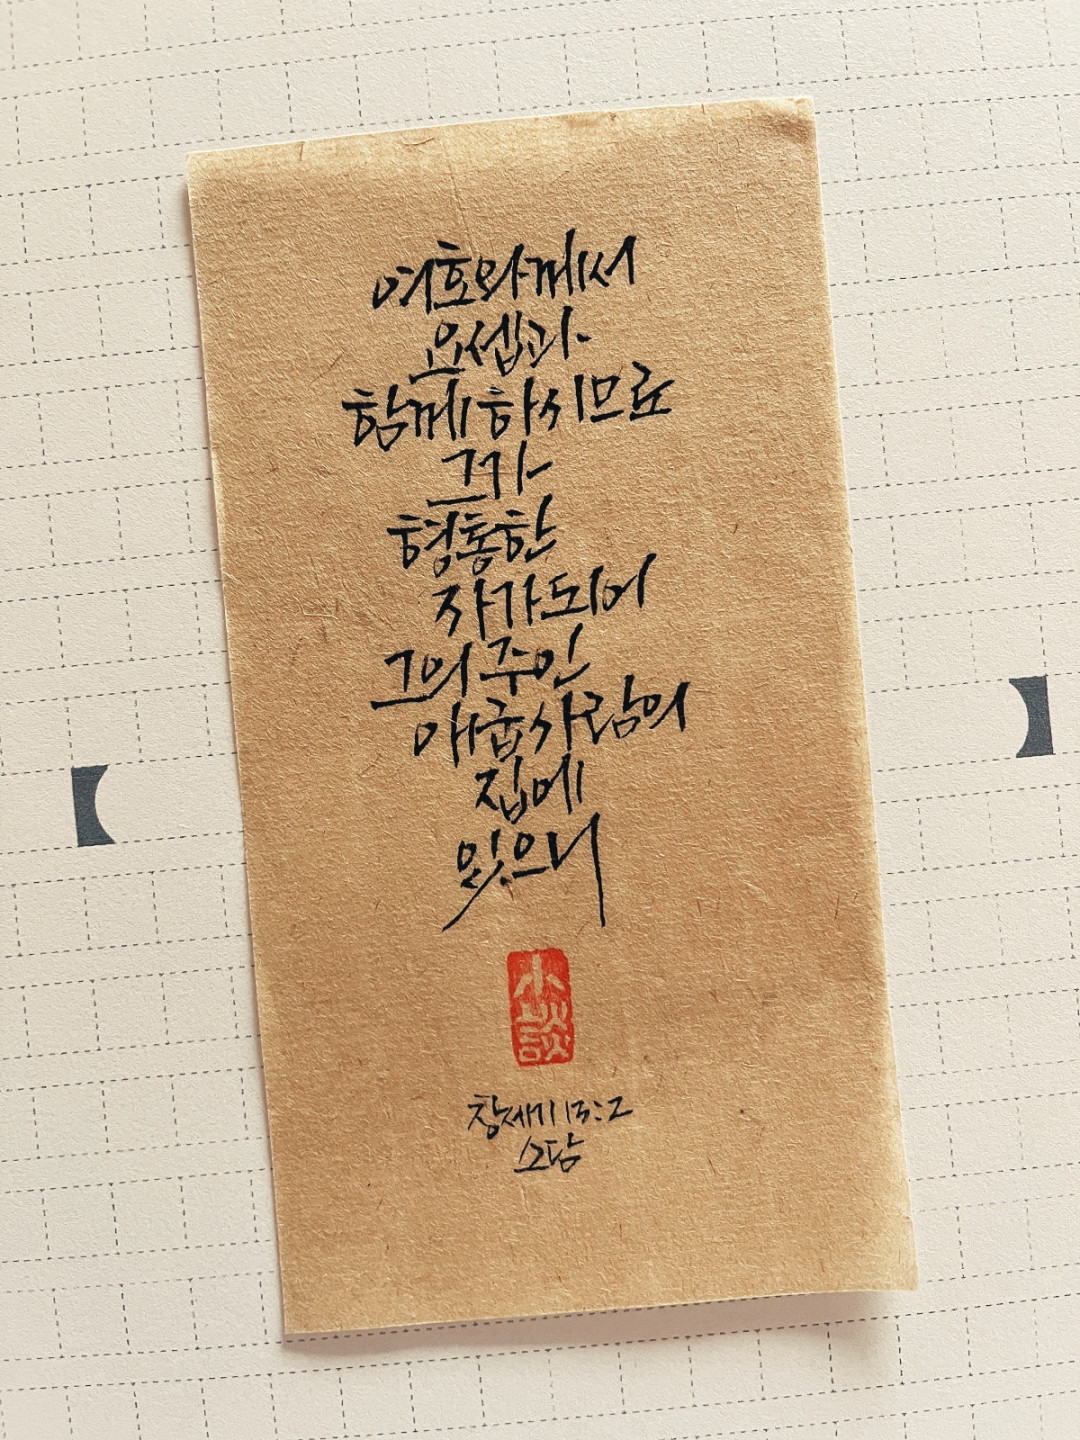 여호와께서
요셉과
함께 하시므로
그가
형통한
자가 되어
그의 주인
애굽 사람의
집에
있으니
小談
창세기
소담